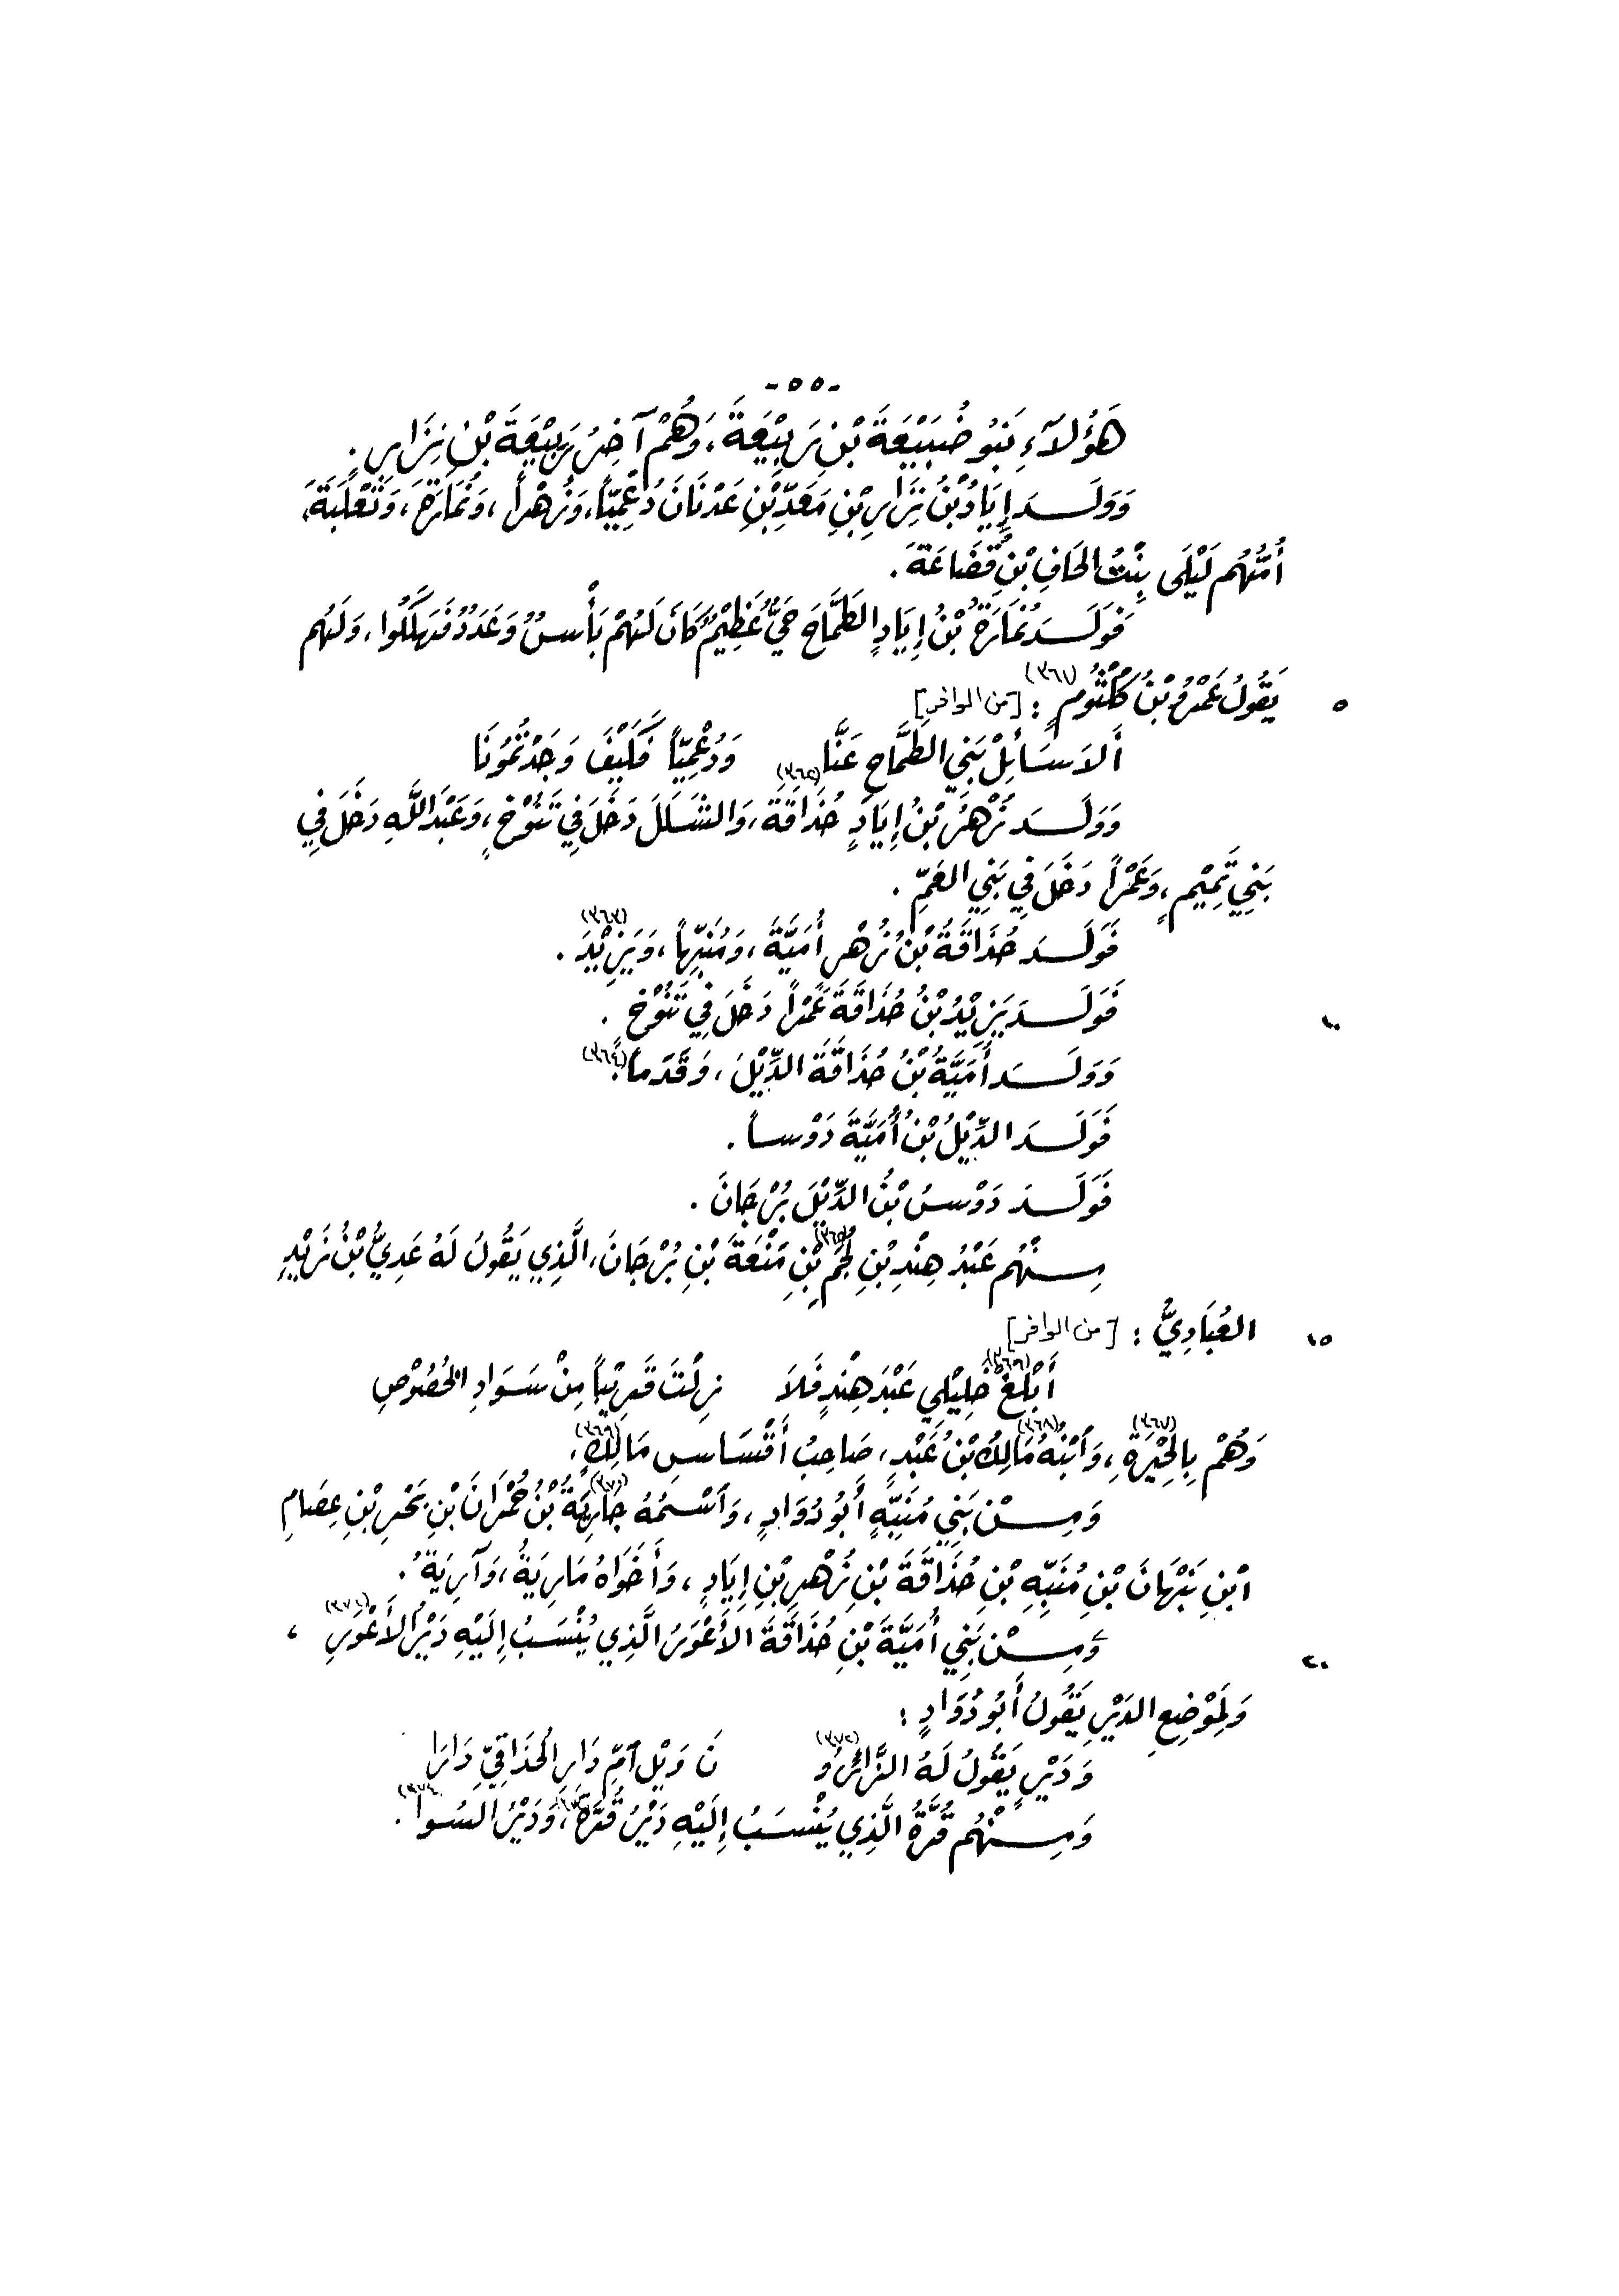 - ٥٥ -
هَؤُلَآءِ بَنُو ضُبَيْعَةَ بْنِ رَبِيْعَةَ، وَهُمْ آخِرُ رَبِيْعَةَ بْنِ نِزَارٍ.
وَوَلَدَ إِيَادُ بْنُ نِزَارِ بْنِ مَعَدِّ بْنِ عَدْنَانَ دُعْمِيّاً، وَزُهْراً، وَنُمَارَةَ، وَثَعْلَبَةَ،
أُمُّهُم لَيْلَى بِنْتُ الحَافِ بْنِ قُضَاعَةَ.
فَوَلَدَ نُمَارَةُ بْنُ إِيَادٍ الطَمَّاحَ حَيٌّ عَظِيْمٌ كَانَ لَهُمْ بَأْسٌ وَعَدَدٌ فَهَلَكُوا، وَلَهُم
٥ يَقُولُ عَمْرُو بْنُ كُلْثُومٍ (٣٦١) : [من الوافر]
أَلاَ سَائِلْ بَنِي الطَمَّاحِ عَنَّا وَدُعْمِيّاً فَكَيْفَ وَجَدْتُمُونَا
وَوَلَدَ زُهْرُ بْنُ إِيَادٍ حُذَاقَةَ (٣٦٢)، وَالشَّلَلَ دَخَلَ فِي تَنُوْخٍ، وَعَبْدَ اللَّهِ دَخَلَ فِي
بَنِي تَمِيْمٍ، وَعَمْراً دَخَلَ فِي بَنِي العَمِّ.
فَوَلَدَ حُذَاقَةُ بْنُ زُهْرٍ أُمَيَّةَ، وَمُنَبِّهاً، وَيَزِيْدَ (٣٦٣).
١٠ فَوَلَدَ يَزِيْدُ بْنُ حُذَاقَةَ عَمْراً دَخَلَ فِي تَنُوْخٍ.
وَوَلَدَ أُمَيَّةُ بْنُ حُذَاقَةَ الدِّيْلَ، وَقَدَماً (٣٦٤).
فَوَلَدَ الدِّيْلُ بْنُ أُمَيَّةَ دَوْساً.
فَوَلَدَ دَوْسُ بْنُ الدِّيْلِ بُرْجَانَ.
مِنْهُم عَبْدُ هِنْدِ بْنِ لُجَمِ (٣٦٥) بْنِ مَنْعَةَ بْنِ بُرْجَانَ، الَّذِي يَقُولُ لَهُ عَدِيُّ بْنُ زَيْدٍ
١٥ العُبَادِيُّ : [من الوافر]
أَبْلِغْ خَلِيْلِي (٣٦٦) عَبْدَ هِنْدٍ فَلاَ زِلْتَ قَرِيْباً مِنْ سَوَادِ الخُصُوْصِ
وَهُمْ بِالحِيْرَةِ (٣٦٧)، وَٱبْنُهُ (٣٦٨) مَالِكُ بْنُ عَبْدٍ، صَاحِبُ أَقْسَاسِ مَالِكٍ (٣٦٩)،
وَمِنْ بَنِي مُنَبِّهٍ أَبُو دُوَادٍ، وَٱسْمُهُ جَارِيَةُ (٣٧٠) بْنُ حُمْرَانَ بْنِ بَحْرِ بْنِ عِصَامِ
ابْنِ نَبْهَانَ بْنِ مُنَبِّهِ بْنِ حُذَاقَةَ بْنِ زُهْرِ بْنِ إِيَادٍ، وَأَخَوَاهُ مَارِيَةُ، وَآرِيَةُ.
٢٠ وَمِنْ بَنِي أُمَيَّةَ بْنِ حُذَاقَةَ الأَعْوَرُ الَّذِي يُنْسَبُ إِلَيْهِ دَيْرُ الأَعْوَرِ (٣٧١)،
وَلِمَوْضِعِ الدَيْرِ يَقُولُ أَبُو دُوَادٍ :
وَدَيْرٍ يَقُولُ لَهُ الزَّائِرُو (٣٧٢) نَ وَيْلِ ٱمِّ دَارِ الحُذَاقِيِّ دَارَا
وَمِنْهُم قُرَّةُ الَّذِي يُنْسَبُ إِلَيْهِ دَيْرُ قُرَّةَ، وَدَيْرُ السُوا (٣٧٤).